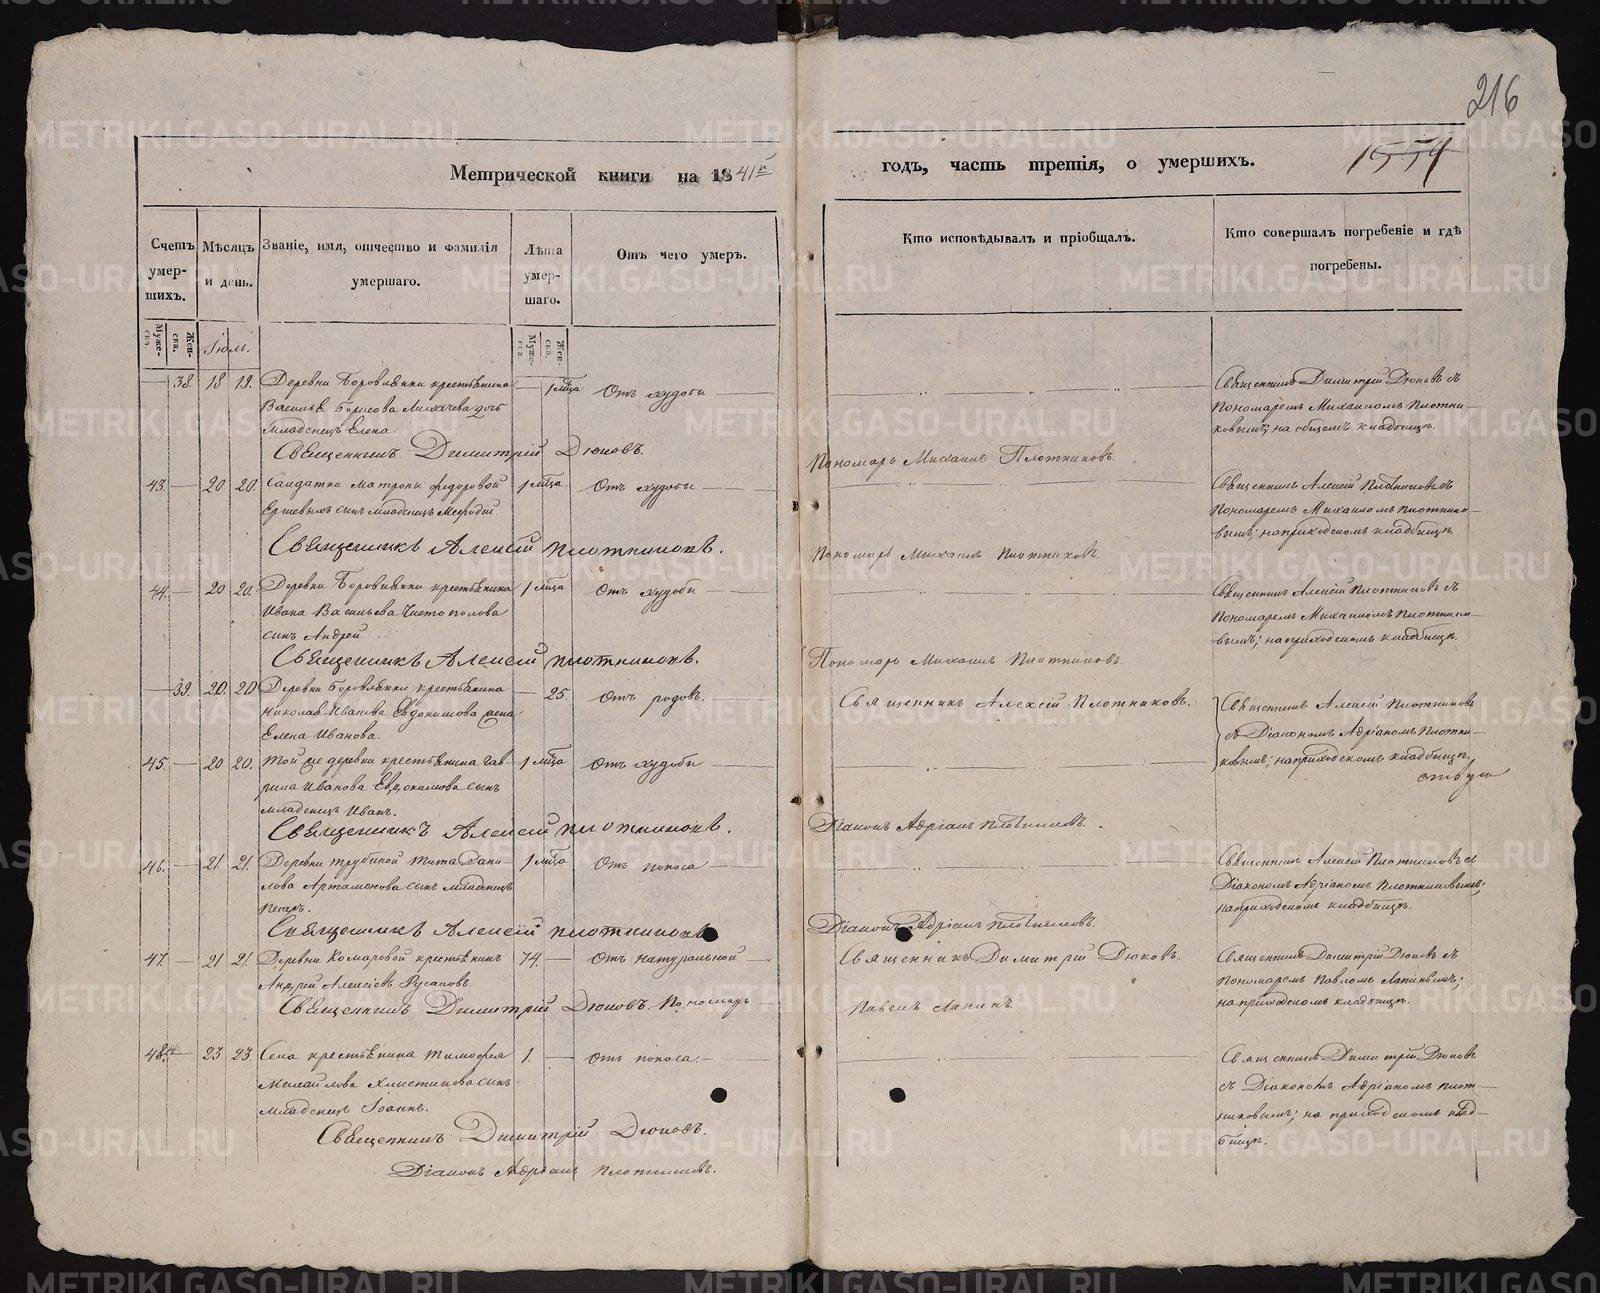 216
Метрической книги на 1841й
годъ, часть третія, о умершихъ.
1554
Счетъ умер-шихъ.
Мѣсяцъ и день.
Званіе, имя, отчество и фамилія умершаго.
Лѣта умер-шаго.
Отъ чего умеръ.
Кто исповѣдывалъ и пріобщалъ.
Кто совершалъ погребеніе и гдѣ погребены.
Муже-ска.
Жен-ска.
Іюль.
Муже-ска
Жен-ска.
38. 18 19. Деревни Боровлянки крестьянина — 1 мѣсца Отъ худобы
Василья Борисова Лихачева дочь
младенецъ Елена.
Священникъ Димитрій Дюковъ.
Пономарь Михаилъ Плотниковъ.
Священникъ Димитрій Дюковъ съ
пономаремъ Михаиломъ Плотни-
ковымъ; на общемъ кладбищѣ.
43. — 20 20. Солдатки Матроны Федоровой 1 мѣсца. Отъ худобы
сынъ младенецъ Мефодій.
Священникъ Алексій Плотниковъ.
Пономарь Михаилъ Плотниковъ
Священникъ Алексій Плотниковъ съ
пономаремъ Михаиломъ Плотнико-
вымъ; на приходскомъ кладбищѣ.
44. — 20 20. Деревни Боровлянки крестьянина 1 мѣсца Отъ худобы
Ивана Васильева Чистополова
сынъ Андрей.
Священникъ Алексій Плотниковъ.
Пономарь Михаилъ Плотниковъ.
Священникъ Алексій Плотниковъ съ
пономаремъ Михаиломъ Плотнико-
вымъ; на приходскомъ кладбищѣ.
— 39. 20. 20 Деревни Боровлянки крестьянина — 25. Отъ родовъ.
Николая Иванова Евдокимова жена
Елена Иванова.
Священникъ Алексій Плотниковъ.
Священникъ Алексій Плотниковъ
съ Діакономъ Адріаномъ Плотни-
ковымъ; на приходскомъ кладбищѣ,
45. — 20 20. Той же деревни крестьянина Гав-
рила Иванова Евдокимова сынъ 1 мѣсца Отъ худобы
младенецъ Иванъ.
Священникъ Алексій Плотниковъ.
Діаконъ Адріанъ Плотниковъ.
46. — 21 21. Деревни Трубиной Тита Дани- 1 мѣсца Отъ поноса
лова Артамонова сынъ младенецъ
Петръ.
Священникъ Алексій Плотниковъ
Діаконъ Адріанъ Плотниковъ.
Священникъ Алексій Плотниковъ съ
Діакономъ Адріаномъ Плотниковымъ;
на приходскомъ кладбищѣ.
47. — 21 21. Деревни Комаровой крестьянинъ 74. — Отъ натуральной
Андрей Алексѣевъ Русаковъ.
Священникъ Димитрій Дюковъ. Пономарь
Священникъ Димитрій Дюковъ.
Павелъ Лапинъ.
Священникъ Димитрій Дюковъ съ
пономаремъ Павломъ Лапинымъ;
на приходскомъ кладбищѣ.
48. — 23 23. Села крестьянина Тимофея 1. — Отъ поноса.
Михайлова сынъ
младенецъ Іоаннъ.
Священникъ Димитрій Дюковъ.
Діаконъ Адріанъ Плотниковъ.
Священникъ Димитрій Дюковъ
съ Діакономъ Адріаномъ Плот-
никовымъ; на приходскомъ клад-
бищѣ.
METRIKI.GASO-URAL.RU